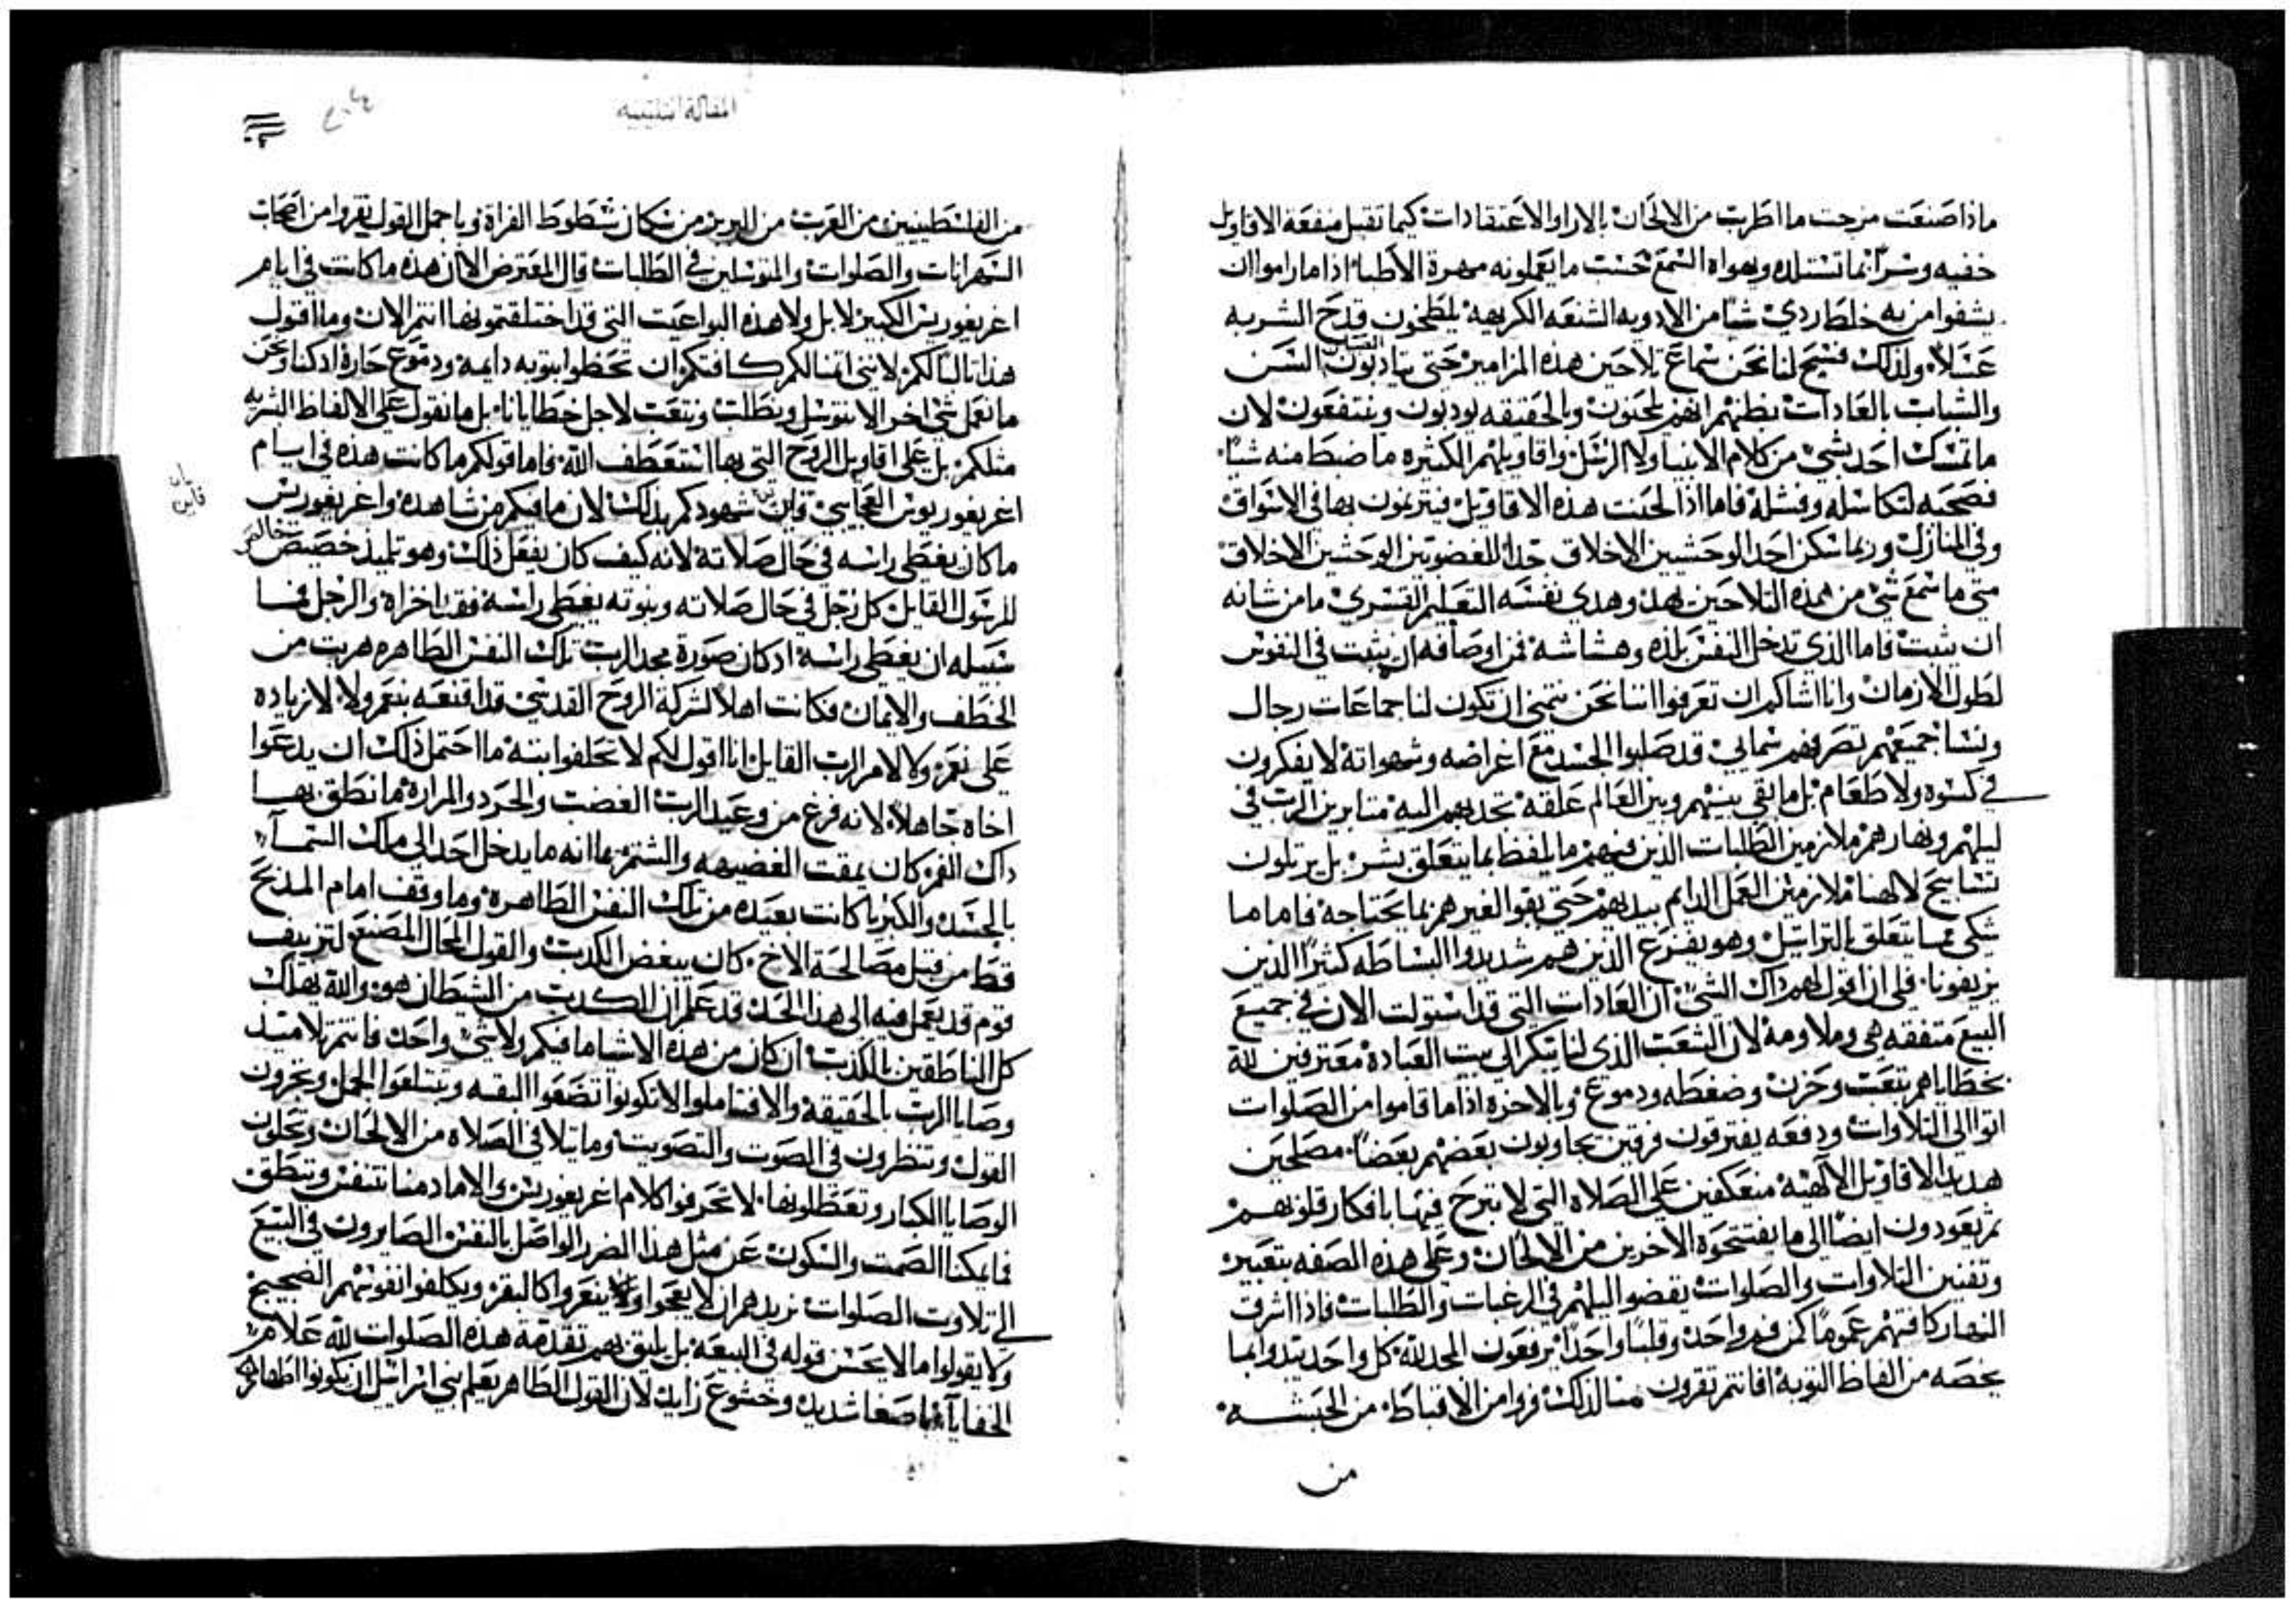 ماذا صنعت مزجت ما اطرب من الالحان بالارا والاعتقادات كيما تقبل منفعة الاقاويل
خفيه وسرًا بما تستلده ويهواه السمع حسب ما يعملونه مهرة الأطبا اذا ما راموا ان
يشفوا من به خلط ردي شيًا من الادويه الشنعه الكريهه يلطخون قدح الشربه
عسلًا ولذلك فسيح لنا نحن سماع تلاحين هذه المزامير حتى يتادبون الفتيان السن
والشباب بالعادات بظنهم انهم يلحنون وبالحقيقه يودبون وينتفعون لان
ما تمسك احد بشي من كلام الانبيا ولا الرسل واقاويلهم الكثيره ما ضبط منه شيًا
فصحبه لتكاسله وفشله فاما اذا لحنت هذه الاقاويل فيترنمون بها في الاسواق
وفي المنازل وربما سكن احد الوحشيين الاخلاق جدًا للغضوبين الوحشين الاخلاق
متى ما سمع شي من هذه التلاحين هذا وهدي نفسه التعليم القسري ما من شانه
ان يثبت فاما الذي يدخل النفس بلذه وهشاشه فمن اوصافه ان يثبت في النفوس
لطول الازمان وانا اشاكم ان تعرفوا اننا نحن نتمنى ان تكون لنا جماعات رجال
ونسا جميعهم تصرفهم سمايي قد صلبوا الجسد مع اغراضه وشهواته لا يفكرون
في كسوه ولا طعام بل ما بقي بينهم وبين العالم علقه تحديهم اليه مثابرين الرب في
ليلهم ونهارهم ملازمين الطلبات الذين فيهم ما يلفظ بما يتعلق بشر بل يرتلون
تسابيح لالهنا ملازمين العمل الدايم بيديهم حتى يقوا لغيرهم بما يحتاجه فاما ما
شكى مما يتعلق بالتراتيل وهو يفزع الذين هم شديدوا البساطه كثيرًا الذين
يزيفونا فلي ان اقول لهم ذاك الشي ان العادات التي قد استولت الان في جميع
البيع متفقه هي وملاومه لان الشعب الذي لنا يبكر الى بيت العباده معترفين لله
بخطاياهم بتعب وحزن وضغطه ودموع وبالاحزه اذا ما قاموا من الصلوات
اتوا الى التلاوات ودفعه يفترقون فرقتين يجاوبون بعضهم بعضًا مصلحين
هديد الاقاويل الالهيه منعكفين على الصلاه التي لا تبرح فيها بافكار قلوبهم
ثم يعودون ايضًا الى ما يفتتحوه الاخرين من الالحان وعلى هذه الصفه بتعبير
وتفنين التلاوات والصلوات يقضوا ليلهم في الرغبات والطلبات فاذا اشرق
النهار كافتهم عمومًا كمن فم واحد وقلبًا واحدًا يرفعون المجد لله كل واحد يبدوا بما
يخصه من الفاظ التوبه افانتم تفرون منا لذلك فروا من الاقباط من الحبشه
من
المقالة الثلثينيه
من الفلسطينيين من العرب من البرين من سكان شطوط الفراة وباجمل القول تفروا من اصحاب
السهرانات والصلوات والمتوسلين في الطلبات قال المعترض الان هذه ما كانت في ايام
اغريغوريس الكبير لا بل ولا هذه البواعيت التي قد اختلقتموها انتم الان وما اقول
هذا ثالبًا لكم لانني اتمنا لكم كافتكم ان تحظوا بتوبه دايمه ودموع حاره اد كنا ونحن
ما نعمل شي اخر الا نتوسل ونطلب ونتعب لاجل خطايانا بل ما نقول على الالفاظ البشريه
مثلكم بل على اقاويل الروح التي بها استعطف الله فاما قولكم ما كانت هذه في ايام
اغريغوريوس العجايبي فاين شهودكم بذلك لان ما فيكم من شاهده واغريغوريس
ما كان يغطي راسه في حال صلاته لانه كيف كان يفعل ذلك وهو تلميذ خصيص خالص
للرسول القايل كل رجل في حال صلاته ونبوته يغطي راسه فقد اخزاه والرجل فما
سبيله ان يغطي راسه اد كان صورة مجد الرب تلك النفس الطاهره هربت من
الخطف والايمان فكانت اهلًا لشركة الروح القدسي قد اقنعه بنعم ولا لا زياده
على نعم ولا لامر الرب القايل انا اقول لكم لا تحلفوا بته ما احتمل ذلك ان يدعوا
اخاه جاهلًا لانه فرغ من وعيد الرب الغضب والحرد والمراره ما نطق بها
داك الفم كان يمقت الغضيهه والشتم بما انه ما يدخل احد الى ملك السماء
بالحسد والكبريا كانت بعيده من تلك النفس الطاهره وما وقف امام المذبح
قط من قبل مصالحة الاخ كان يبغض الكدب والقول المحال المصنع لتزييف
قوم قد يعمل فيه الى هذا الحد قد علم ان الكدب من الشيطان هو والله يهلك
كل الناطقين بالكدب ان كان من هذه الاشيا ما فيكم ولا شي واحد فانتم تلاميد
وصايا الرب بالحقيقه والا فتاملوا لا تكونوا تصفوا البقه وتبتلعوا الجمل وتحرون
القول وتنظرون في الصوت والتصويت وما يتلا في الصلاه من الالحان وتحلون
الوصايا الكبار وتعطلونها لا تحرفوا كلام اغريغوريس والا ما دمنا نتنفس وننطق
فما يمكنا الصمت والسكون عن مثل هذا الضرر الواصل بالنفس الصايرون في البيع
الى تلاوت الصلوات نريدهم ان لا يعجوا ولا ينعروا كالبقر ويكلفوا نفوسهم الضجيج
ولا يقولوا ما لا يحسن قوله في البيعه بل يليق بهم تقدمة هذه الصلوات لله علام
الخفايا باصغا شديد وخشوع زايد لان القول الطاهر يعلم بني اسراييل ان يكونوا اطهار